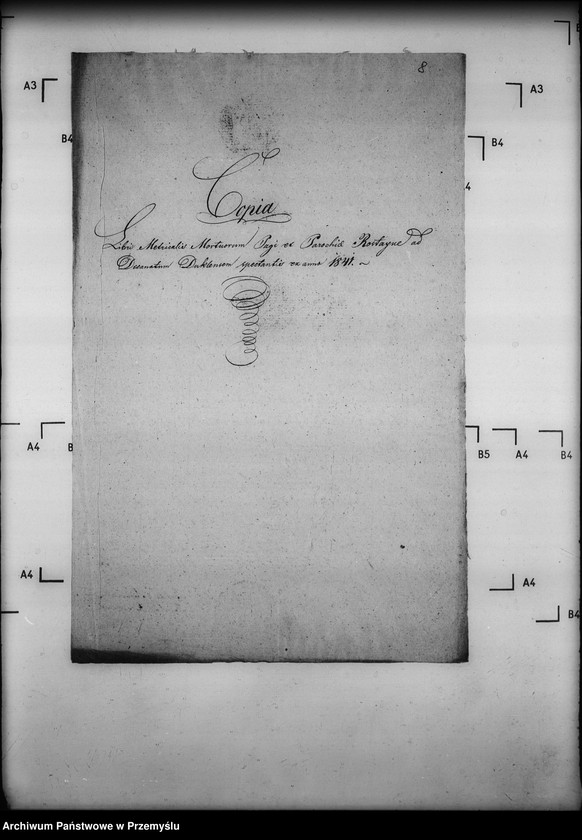 8
A3
A3
B4
B4
4
Copia
Libri Metricalis Mortuorum Pagi et Parochiæ Rostayne ad
Decanatum Duklensem spectantis ex anno 1841.
A4
B
B5
A4
B4
A4
A4
B4
Archiwum Państwowe w Przemyślu